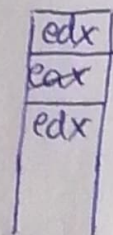 edx
eax
edx